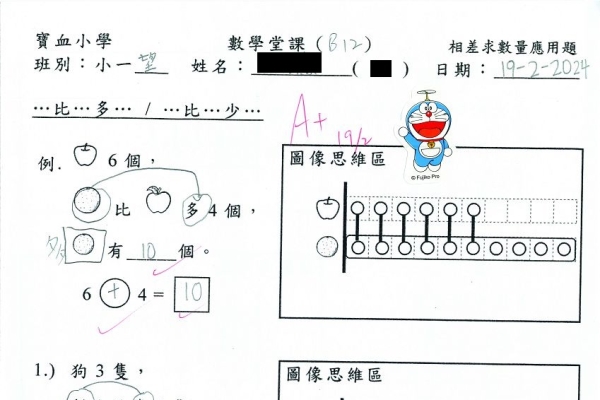 寶血小學 數學堂課(B12) 相差求數量應用題
班別：小一望 姓名： ( ) 日期：19-2-2024
…比…多… / …比…少…
A+
19/2
© Fujiko Pro
例. 6個，
比 多4個，
多 有 10 個。
6 + 4 = 10
圖像思維區
1.) 狗3隻，
圖像思維區